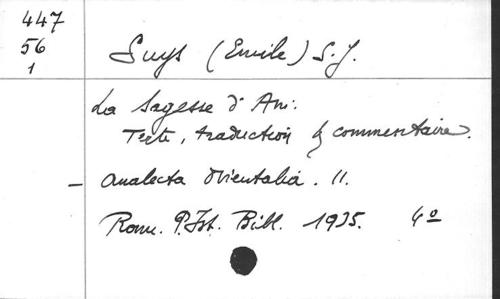 447
56
1
Suys (Emile) S.J.
La Sagesse d'Ani.
Texte, traduction & commentaire.
– Analecta Orientalia. 11.
Rom. P. Ist. Bibl. 1935. 4º